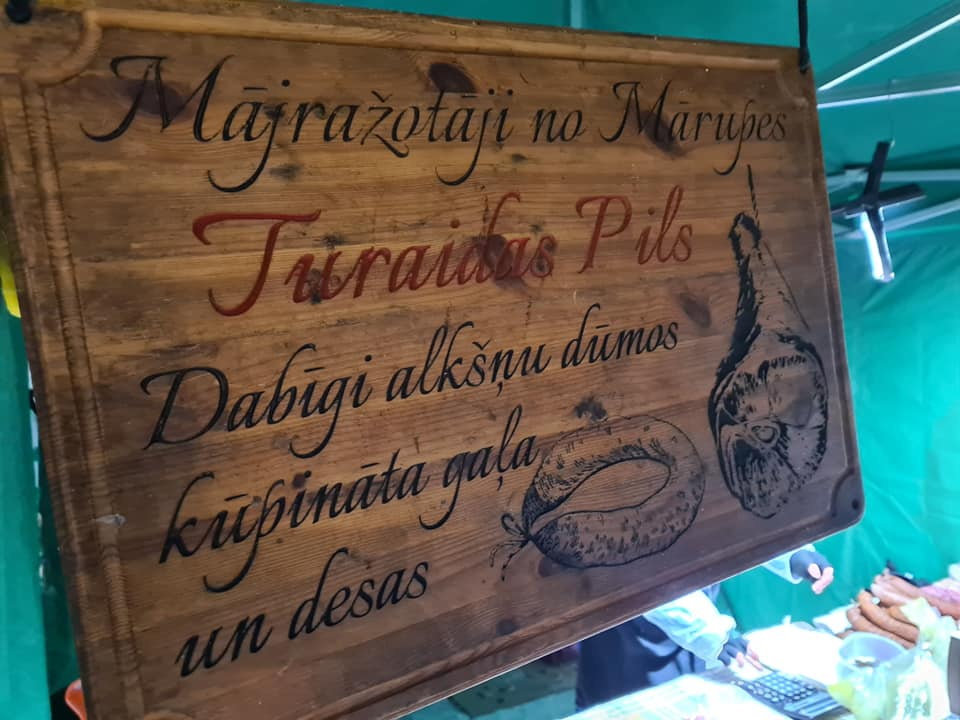 Mājražotāji no Mārupes
Turaidas Pils
Dabīgi alkšņu dūmos
kūpināta gaļa
un desas